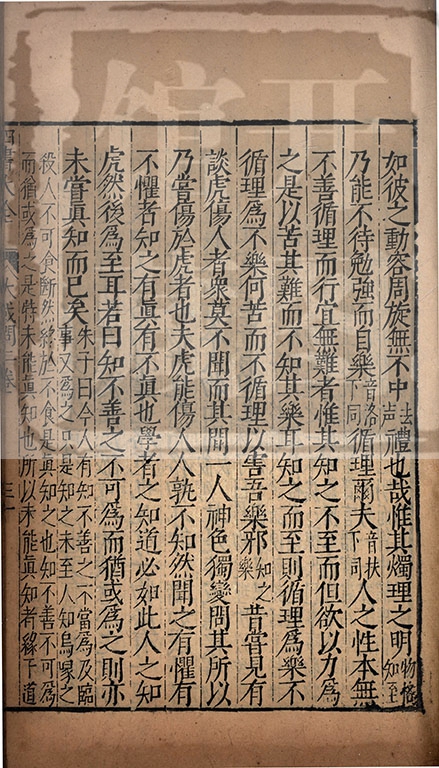 如彼之動容周旋無不中去声禮也哉惟其燭理之明物格知至
乃能不待勉強而自樂音洛下同循理爾夫音扶下同人之性本無
不善循理而行宜無難者惟其知之不至而但欲以力為
之是以苦其難而不知其樂耳知之而至則循理為樂不
循理為不樂何苦而不循理以害吾樂邪知之樂昔嘗見有
談虎傷人者衆莫不聞而其間一人神色獨變問其所以
乃嘗傷於虎者也夫虎能傷人人孰不知然聞之有懼有
不懼者知之有眞有不眞也學者之知道必如此人之知
虎然後為至耳若曰知不善之不可為而猶或為之則亦
未嘗眞知而已矣朱子曰今人有知不善之不當為及臨
事又為之只是知之未至人知烏喙之
人不可食斷然終於不食是眞知之也知不善不可為
而猶或為之是特未能眞知也所以未能眞知者緣下道